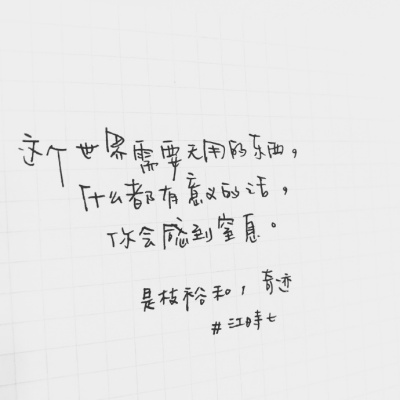 这个世界需要无用的东西，
什么都有意义的话，
你会感到窒息。
是枝裕和，奇迹
#江時七